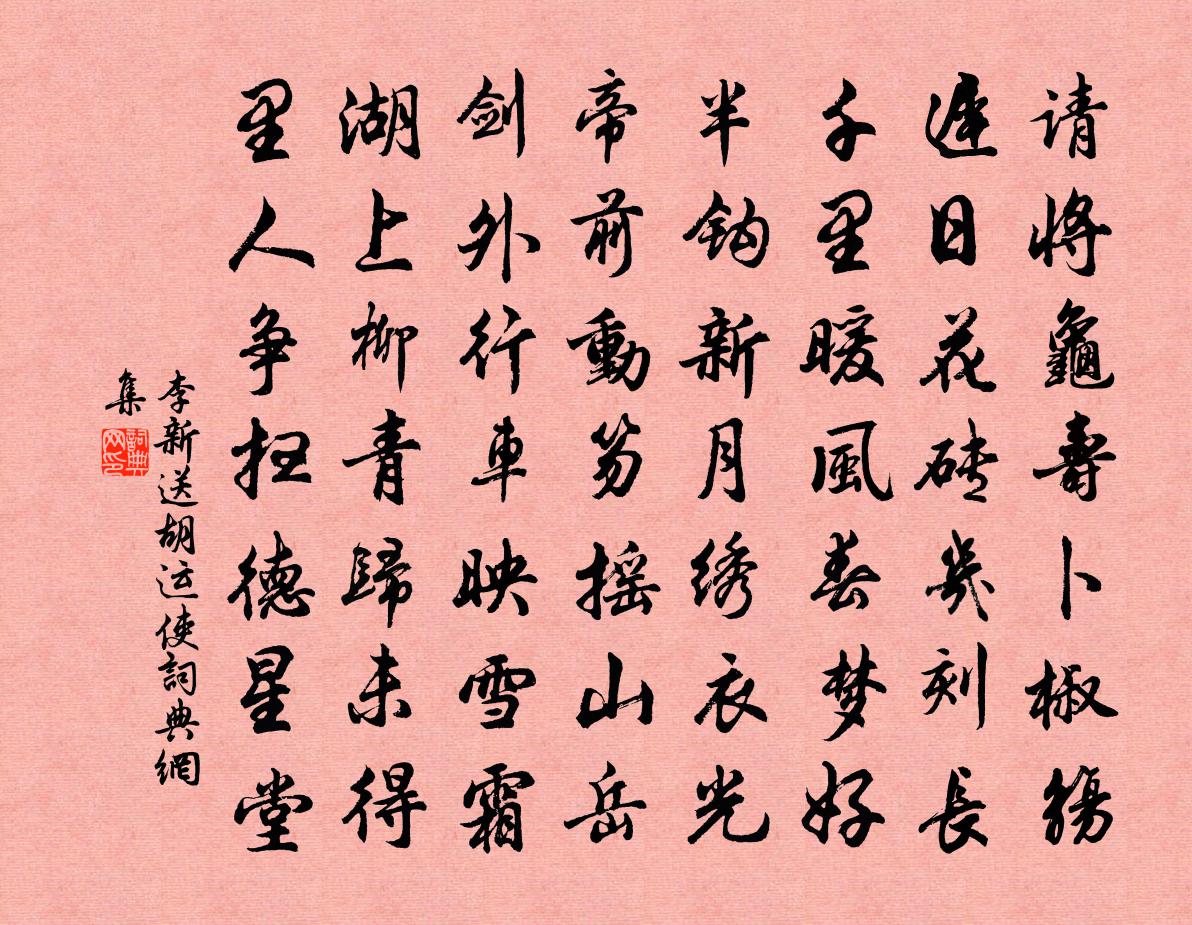 请将龜壽卜椒觴
遲日花砖幾刻長
千里暖風春梦好
半钩新月绣衣光
帝前動笏摇山岳
剑外行車映雪霜
湖上柳青歸未得
里人争扫德星堂
李新送胡运使詞典網
集
詞典
网印